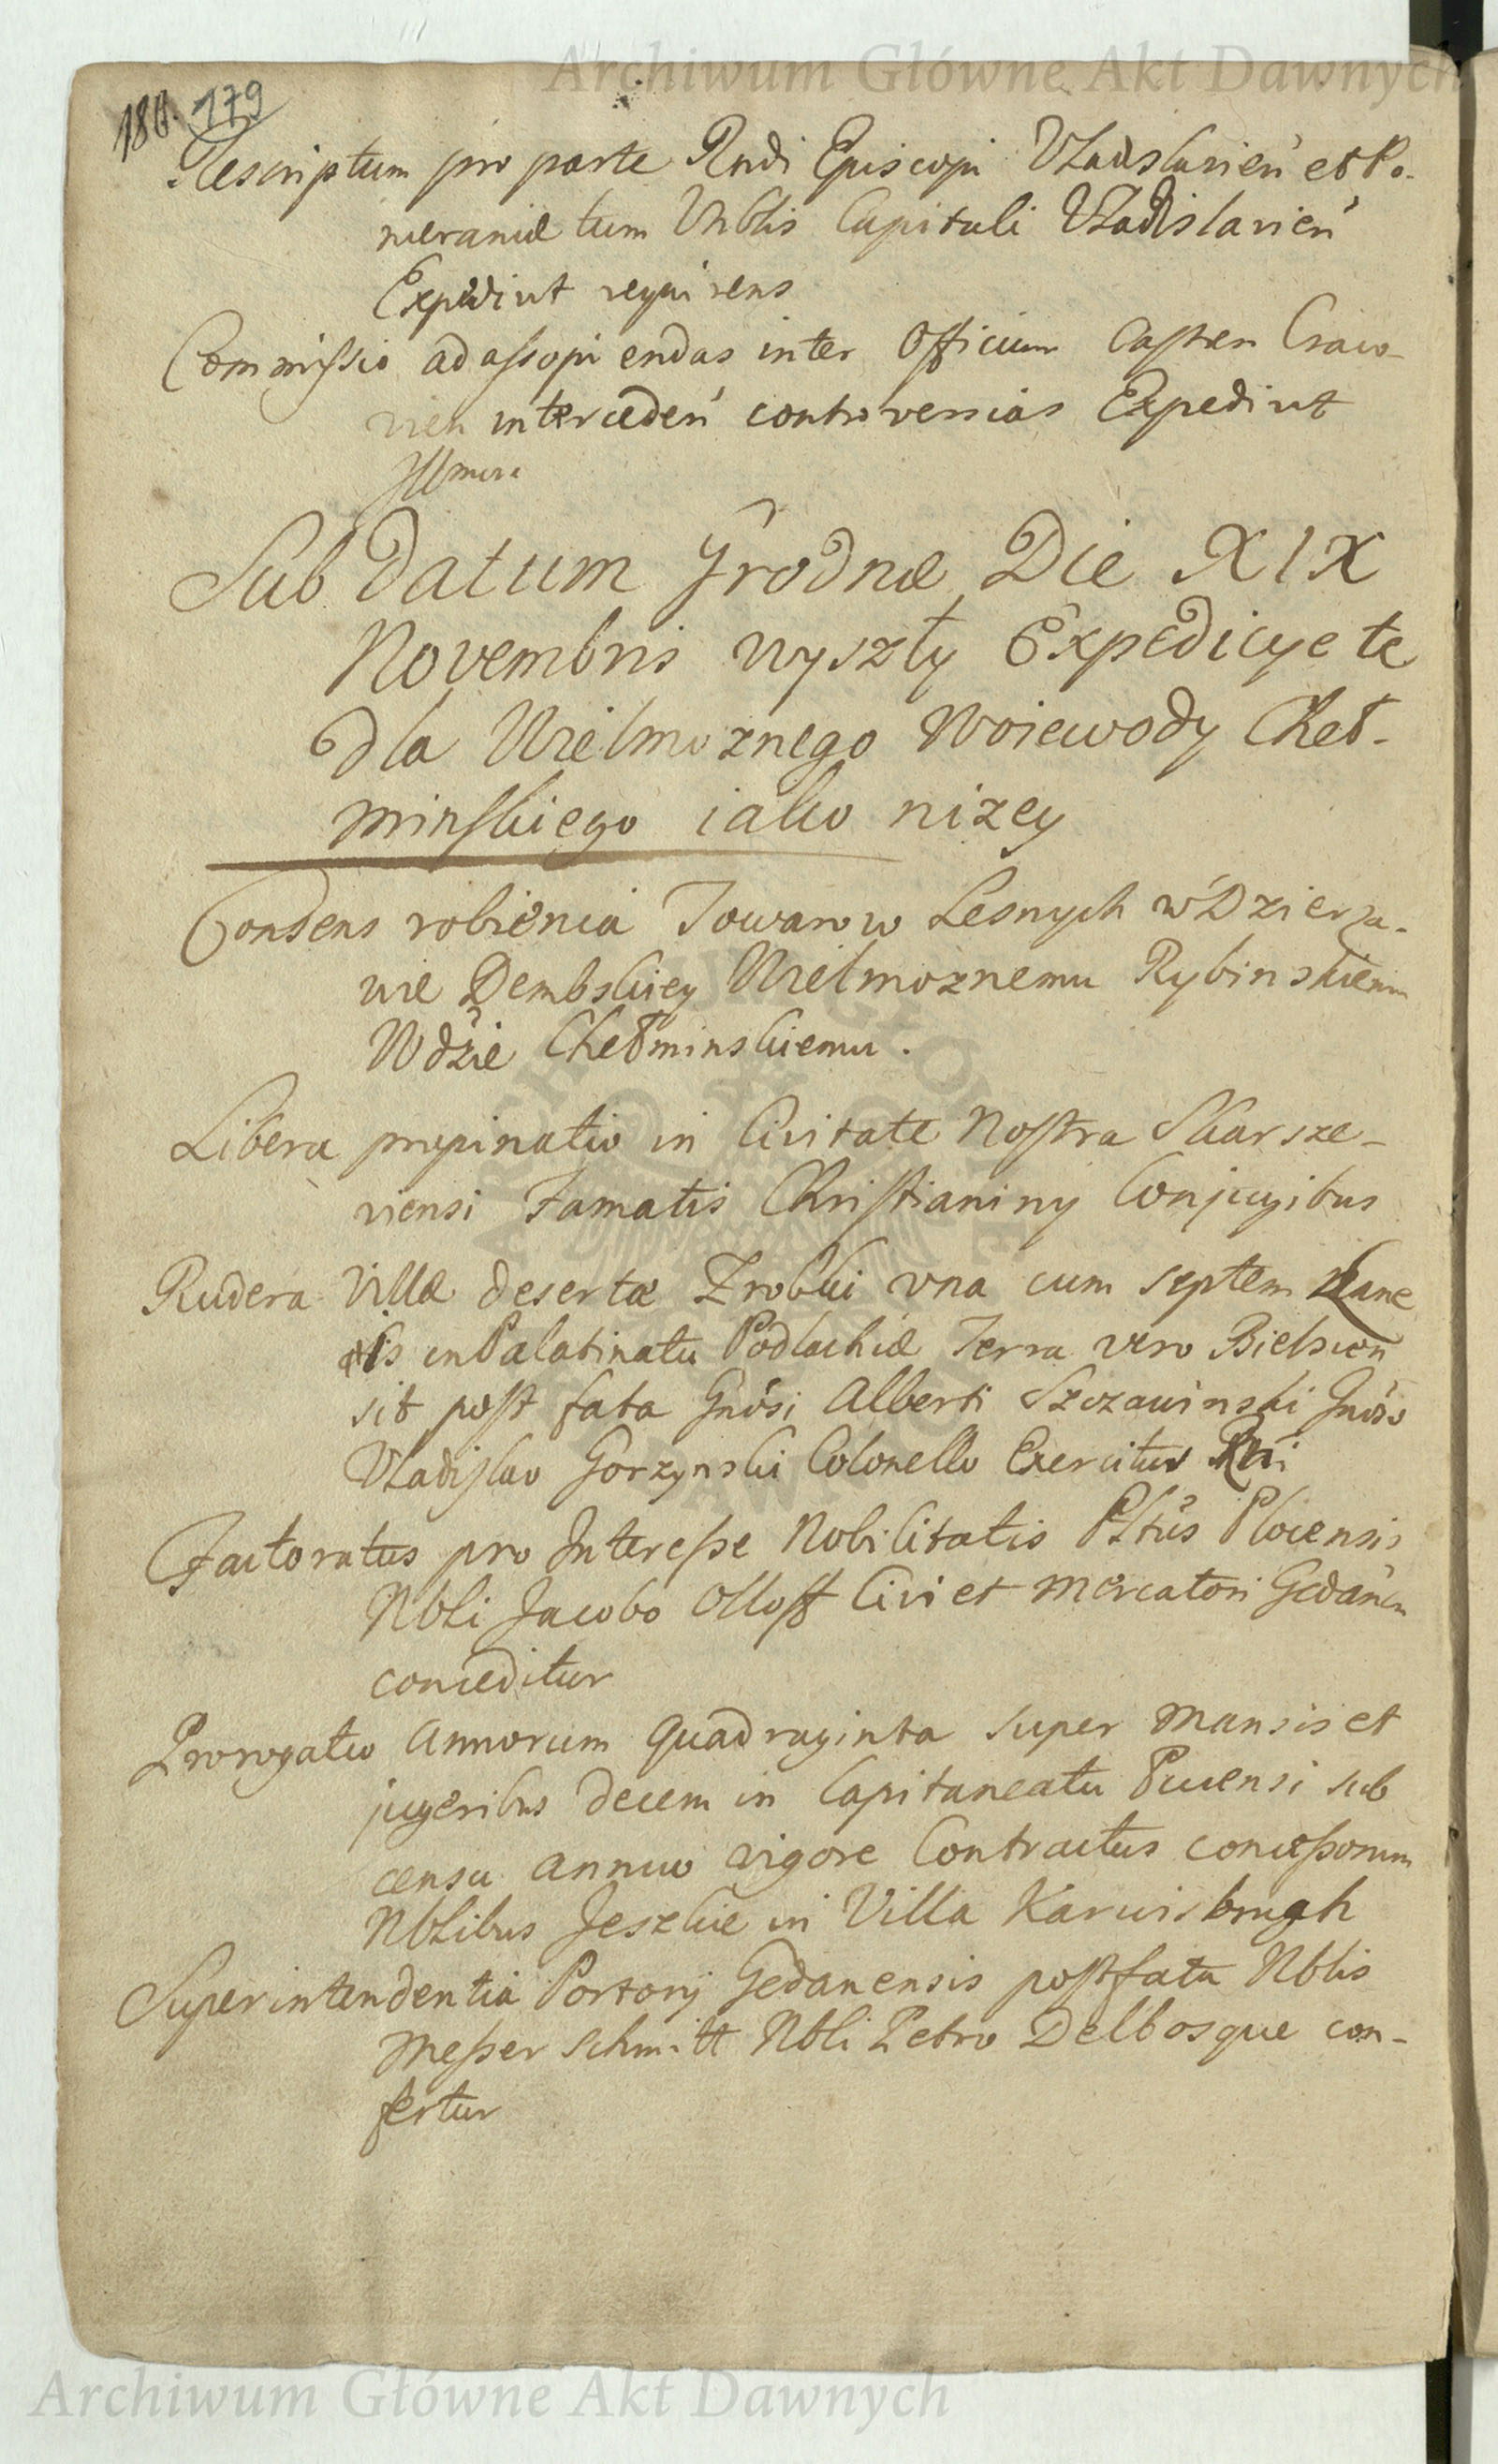 Archiwum Główne Akt Dawnych
180. 179
Rescriptum pro parte Rndi Episcopi Vładislavien et Po-
meraniæ tum Vnblis Capituli Vładislavien
Expediut requirens
Commissio ad assopiendas inter Officium Castren Craco-
vien interceden controversias Expediut
Sub datum Grodnæ Die XIX
Novembris wyszły Expedicye te
dla Wielmoznego Woiewody Cheł-
minskiego iako nizey
Consens robienia Towarow Lesnych w Dzierza-
wie Dembskiey Wielmoznemu Rybinskiemu
Wdzie Chełminskiemu.
Libera propinatio in Civitate Nostra Skarsze-
viensi Famatis Christianiny Conjugibus
Rudera Villæ desertæ Zrobki una cum septem Mane
is in Palatinatu Podlachiæ Terra vero Bielscen
sit post fata Gnosi Alberti Szczawinski Gnoso
Vladislao Gorzynski Colonello Exercitus Rni
Factoratus pro Interesse Nobilitatis Pltus Plocensis
Nbli Jacobo Olloff Civi et Mercatori Gedanen
conceditur
Prorogatio Annorum Quadraginta super Mansis et
jugeribus decem in Capitaneatu Pucensi sub
censu annuo vigore Contractus concessorum
Nblibus Jeszkie in Villa Karwisbrugh
Superintendentia Portorij Gedanensis post fata Nblis
Messer Schmitt Nbli Petro Delbosque con-
fertur
Archiwum Główne Akt Dawnych